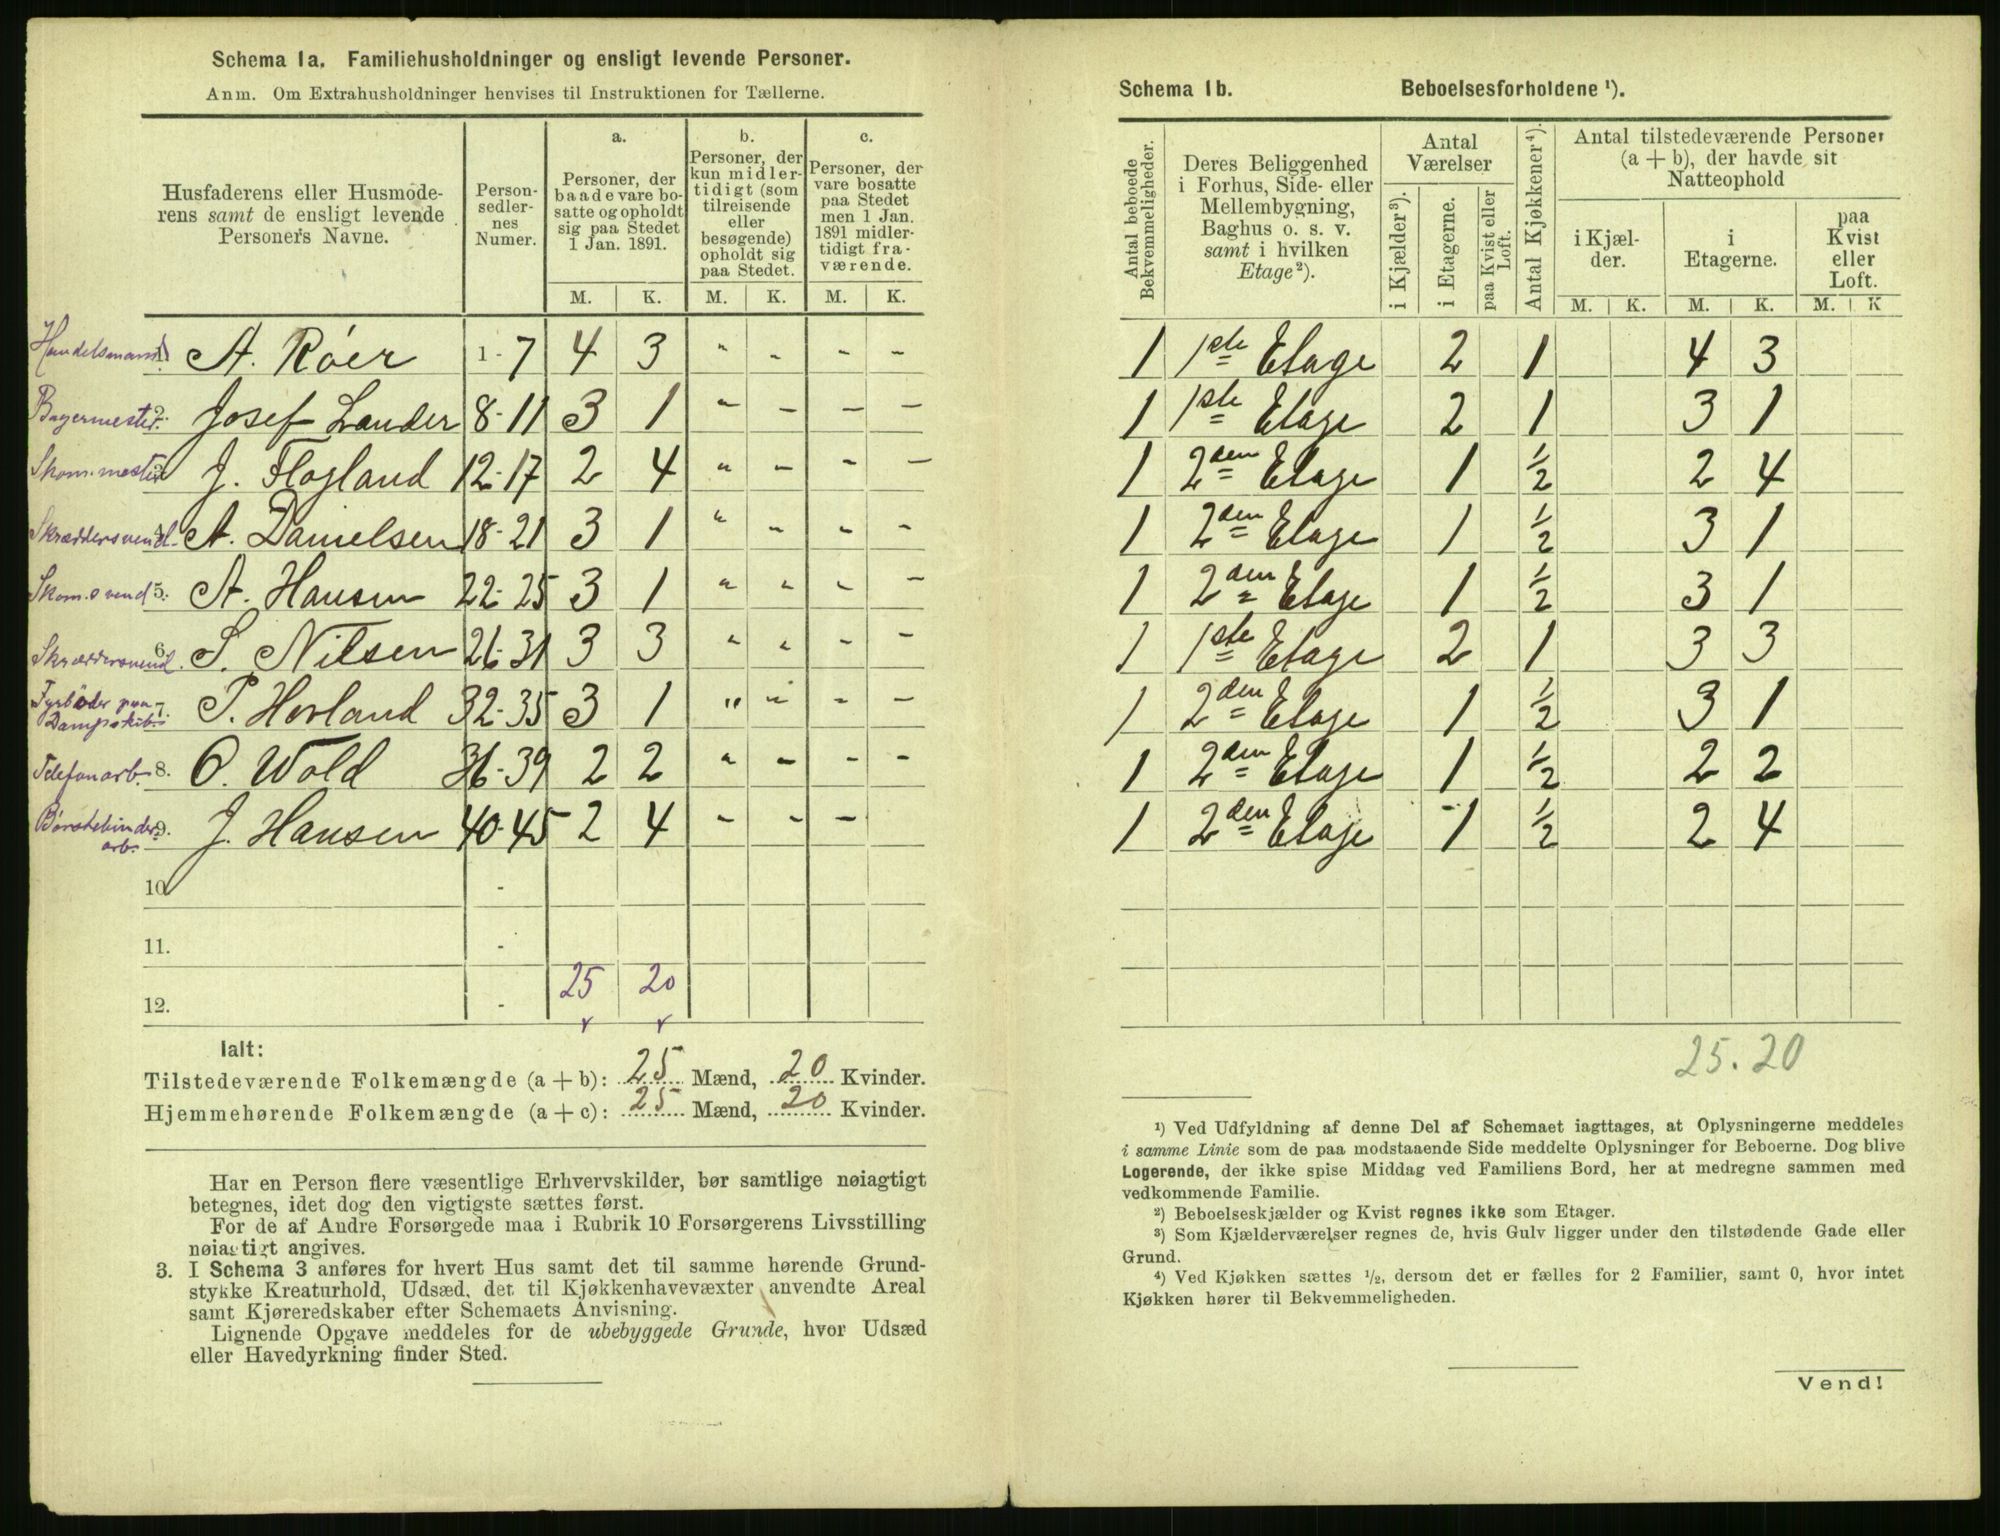 Schema 1a. Familiehusholdninger og ensligt levende Personer.
Anm. Om Extrahusholdninger henvises til Instruktionen for Tællerne.
Husfaderens eller Husmode-
rens samt de ensligt levende
Personers Navne.
Person-
sedler-
nes
Numer.
a.
Personer, der
baade vare bo-
satte og opholdt
sig paa Stedet
1 Jan. 1891.
b.
Personer, der
kun midler-
tidigt (som
tilreisende
eller
besøgende)
opholdt sig
paa Stedet.
c.
Personer, der
vare bosatte
paa Stedet
men 1 Jan.
1891 midler-
tidigt fra-
værende.
M. K. M. K. M. K.
Handelsmand 1. A. Róer 1-7 4 3 " - - -
2. Josef Lander 8-11 3 1 " - - -
Skom.mester 3. J. Flogland 12-17 2 4 " - - -
Skræddersvend 4. A. Danielsen 18-21 3 1 " - - -
Skom.svend 5. A. Hansen 22-25 3 1 " " - -
Skræddersvend. 6. S. Nilsen 26-31 3 3 " " - -
Fyrböder paa
Dampskib. 7. P. Hovland 32-35 3 1 " - - -
Telefonarb. 8. O. Wold 36-39 2 2 " - - -
Børstebinder
arb. 9. J. Hansen 40-45 2 4 - - -
10. -
11. -
12. - 25 20
Ialt:
Tilstedeværende Folkemængde (a + b): 25 Mænd, 20 Kvinder.
Hjemmehørende Folkemængde (a + c): 25 Mænd, 20 Kvinder.
Har en Person flere væsentlige Erhvervskilder, bør samtlige nøiagtigt
betegnes, idet dog den vigtigste sættes først.
For de af Andre Forsørgede maa i Rubrik 10 Forsørgerens Livsstilling
nøiagtigt angives.
3. I Schema 3 anføres for hvert Hus samt det til samme hørende Grund-
stykke Kreaturhold, Udsæd, det til Kjøkkenhavevæxter anvendte Areal
samt Kjøreredskaber efter Schemaets Anvisning.
Lignende Opgave meddeles for de ubebyggede Grunde, hvor Udsæd
eller Havedyrkning finder Sted.
Schema 1b. Beboelsesforholdene ¹).
Antal beboede
Bekvemmeligheder.
Deres Beliggenhed
i Forhus, Side- eller
Mellembygning,
Baghus o. s. v.
samt i hvilken
Etage ²).
Antal
Værelser
i Kjælder ³).
i Etagerne.
paa Kvist eller
Loft.
Antal Kjøkkener ⁴).
Antal tilstedeværende Personer
(a + b), der havde sit
Natteophold
i Kjæl-
der.
i
Etagerne.
paa
Kvist
eller
Loft.
M. K. M. K. M. K
1 1ste Etage 2 1 4 3
1 1ste Etage 2 1 3 1
1 2den Etage 1 ½ 2 4
1 2den Etage 1 ½ 3 1
1 2den Etage 1 ½ 3 1
1 1ste Etage 2 1 3 3
1 2den Etage 1 ½ 3 1
1 2den Etage 1 ½ 2 2
1 2den Etage 1 ½ 2 4
25. 20
¹) Ved Udfyldning af denne Del af Schemaet iagttages, at Oplysningerne meddeles
i samme Linie som de paa modstaaende Side meddelte Oplysninger for Beboerne. Dog blive
Logerende, der ikke spise Middag ved Familiens Bord, her at medregne sammen med
vedkommende Familie.
²) Beboelseskjælder og Kvist regnes ikke som Etager.
³) Som Kjælderværelser regnes de, hvis Gulv ligger under den tilstødende Gade eller
Grund.
⁴) Ved Kjøkken sættes ½, dersom det er fælles for 2 Familier, samt 0, hvor intet
Kjøkken hører til Bekvemmeligheden.
Vend!